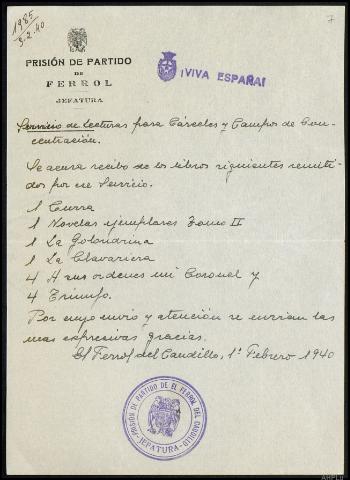 1985
3-2-40
7
PRISIÓN DE PARTIDO
DE
FERROL
JEFATURA
¡VIVA ESPAÑA!
Servicio de Lecturas para Cárceles y Campos de Con-
centración.
Se acusa recibo de los libros siguientes remiti-
dos por ese Servicio.
1 Curra
1 Novelas ejemplares Tomo II
1 La Golondrina
1 La Clavariera
4 A sus ordenes mi Coronel y
4 Triunfo.
Por cuyo envio y atención se envian las
mas expresivas gracias.
El Ferrol del Caudillo, 1º Febrero 1940
PRISIÓN DE PARTIDO DE EL FERROL DEL CAUDILLO
-JEFATURA-
AHPLU